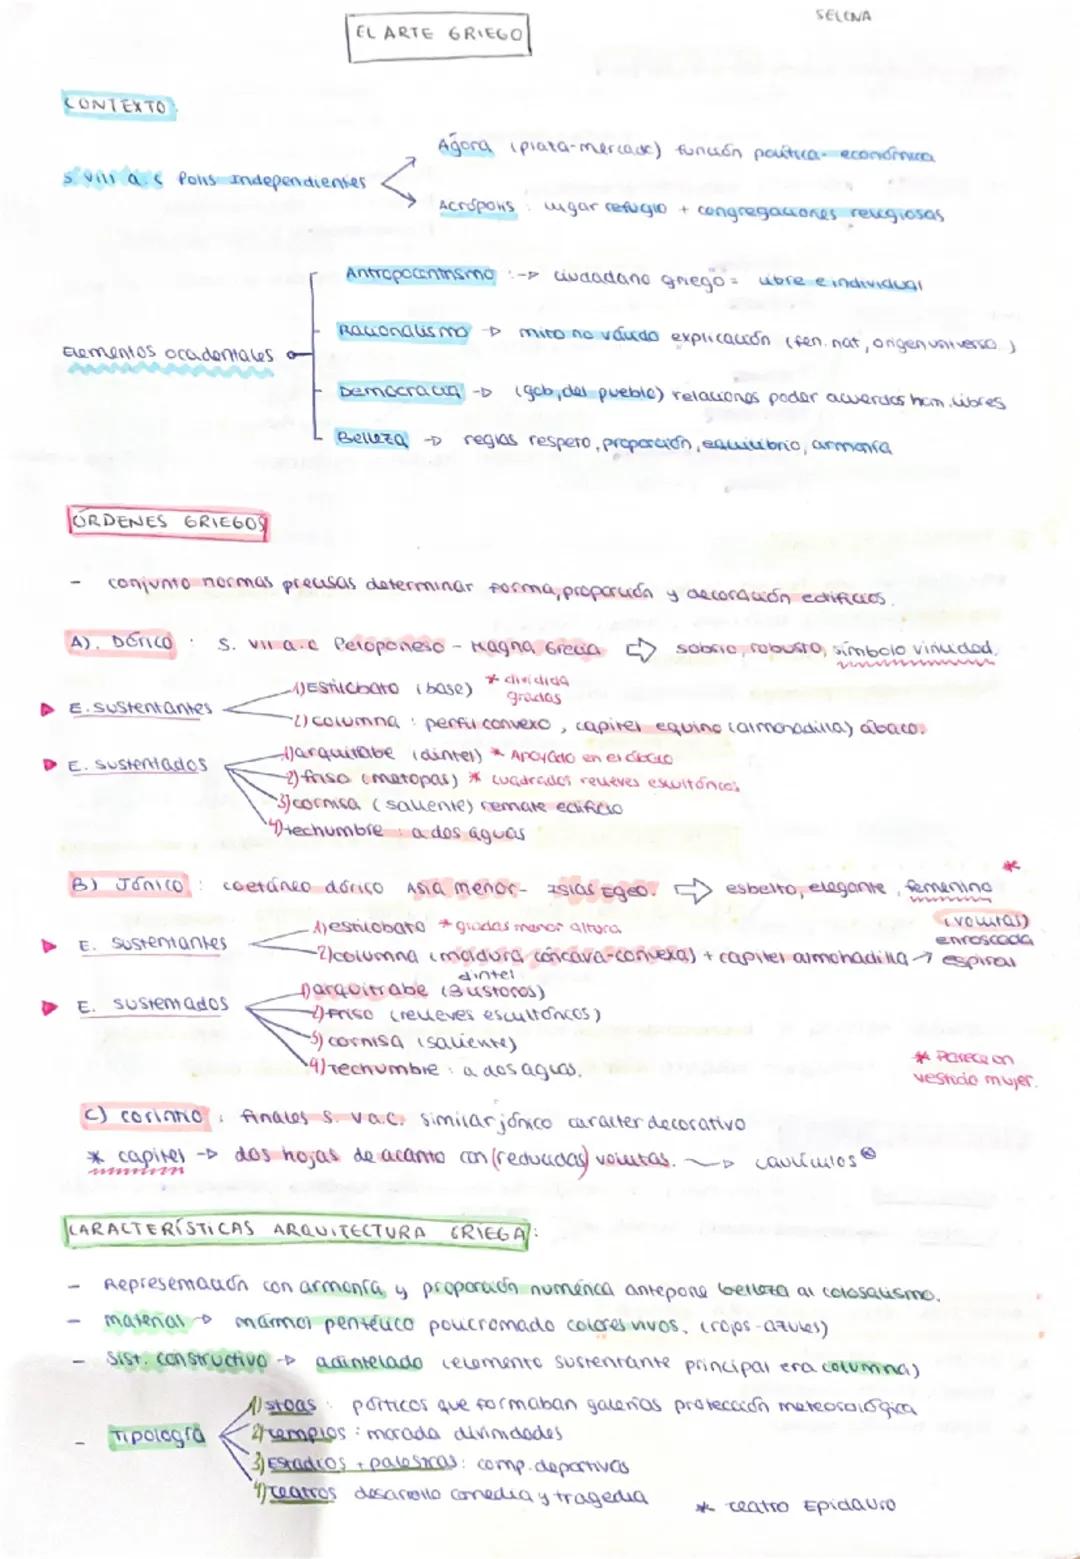 SELENA
EL ARTE GRIEGO
CONTEXTO:
Ágora (plaza-mercado) función política-económica
S. VIII a.c Polis Independientes
Acrópolis: lugar refugio + congregaciones religiosas
Antropocentrismo :-> ciudadano griego = libre e individual
Racionalismo -> mito no válido explicación (fen. nat, origen universo.)
Elementos occidentales
Democracia -> (gob, del pueblo) relaciones poder acuerdos hom. libres
Belleza -> reglas respeto, proporción, equilibrio, armonía
ÓRDENES GRIEGOS
- conjunto normas precisas determinar forma, proporción y decoración edificios.
A). Dórico : S. VII a.c Peloponeso - Magna Grecia ⇨ sobrio, robusto, símbolo virilidad.
1) Estilobato (base) * dividida gradas
E. sustentantes
2) columna : perfil convexo, capitel equino (almohadilla) ábaco.
1) arquitrabe (dintel) * Apoyado en el ábaco
E. sustentados
2) friso (metopas) * cuadrados relieves escultóricos
3) cornisa (saliente) remate edificio
4) techumbre : a dos aguas
B) Jónico : coetáneo dórico Asia menor - Islas Egeo. ⇨ esbelto, elegante, femenino *
(volutas)
1) estilobato * gradas menor altura
enroscada
E. sustentantes
2) columna (moldura cóncava-convexa) + capitel almohadilla → espiral
dintel
1) arquitrabe (3 )
E. sustentados
2) Friso (relieves escultóricos)
3) cornisa (saliente)
4) Techumbre : a dos aguas.
* Parece un vestido mujer.
C) corintio : finales S. V a.C. similar jónico caracter decorativo
* capitel -> dos hojas de acanto con (reducidas) volutas. -> caulículos
CARACTERÍSTICAS ARQUITECTURA GRIEGA:
- Representación con armonía y proporción numérica antepone belleza al colosalismo.
- material -> mármol pentélico policromado colores vivos. (rojos-azules)
- Sist. constructivo -> adintelado (elemento sustentante principal era columna)
1) stoas : pórticos que formaban galerías protección meteorológica
- Tipología
2) templos : morada divinidades
3) Estadios + palestras: comp. deportivas
4) teatros desarrollo comedia y tragedia * teatro Epidauro